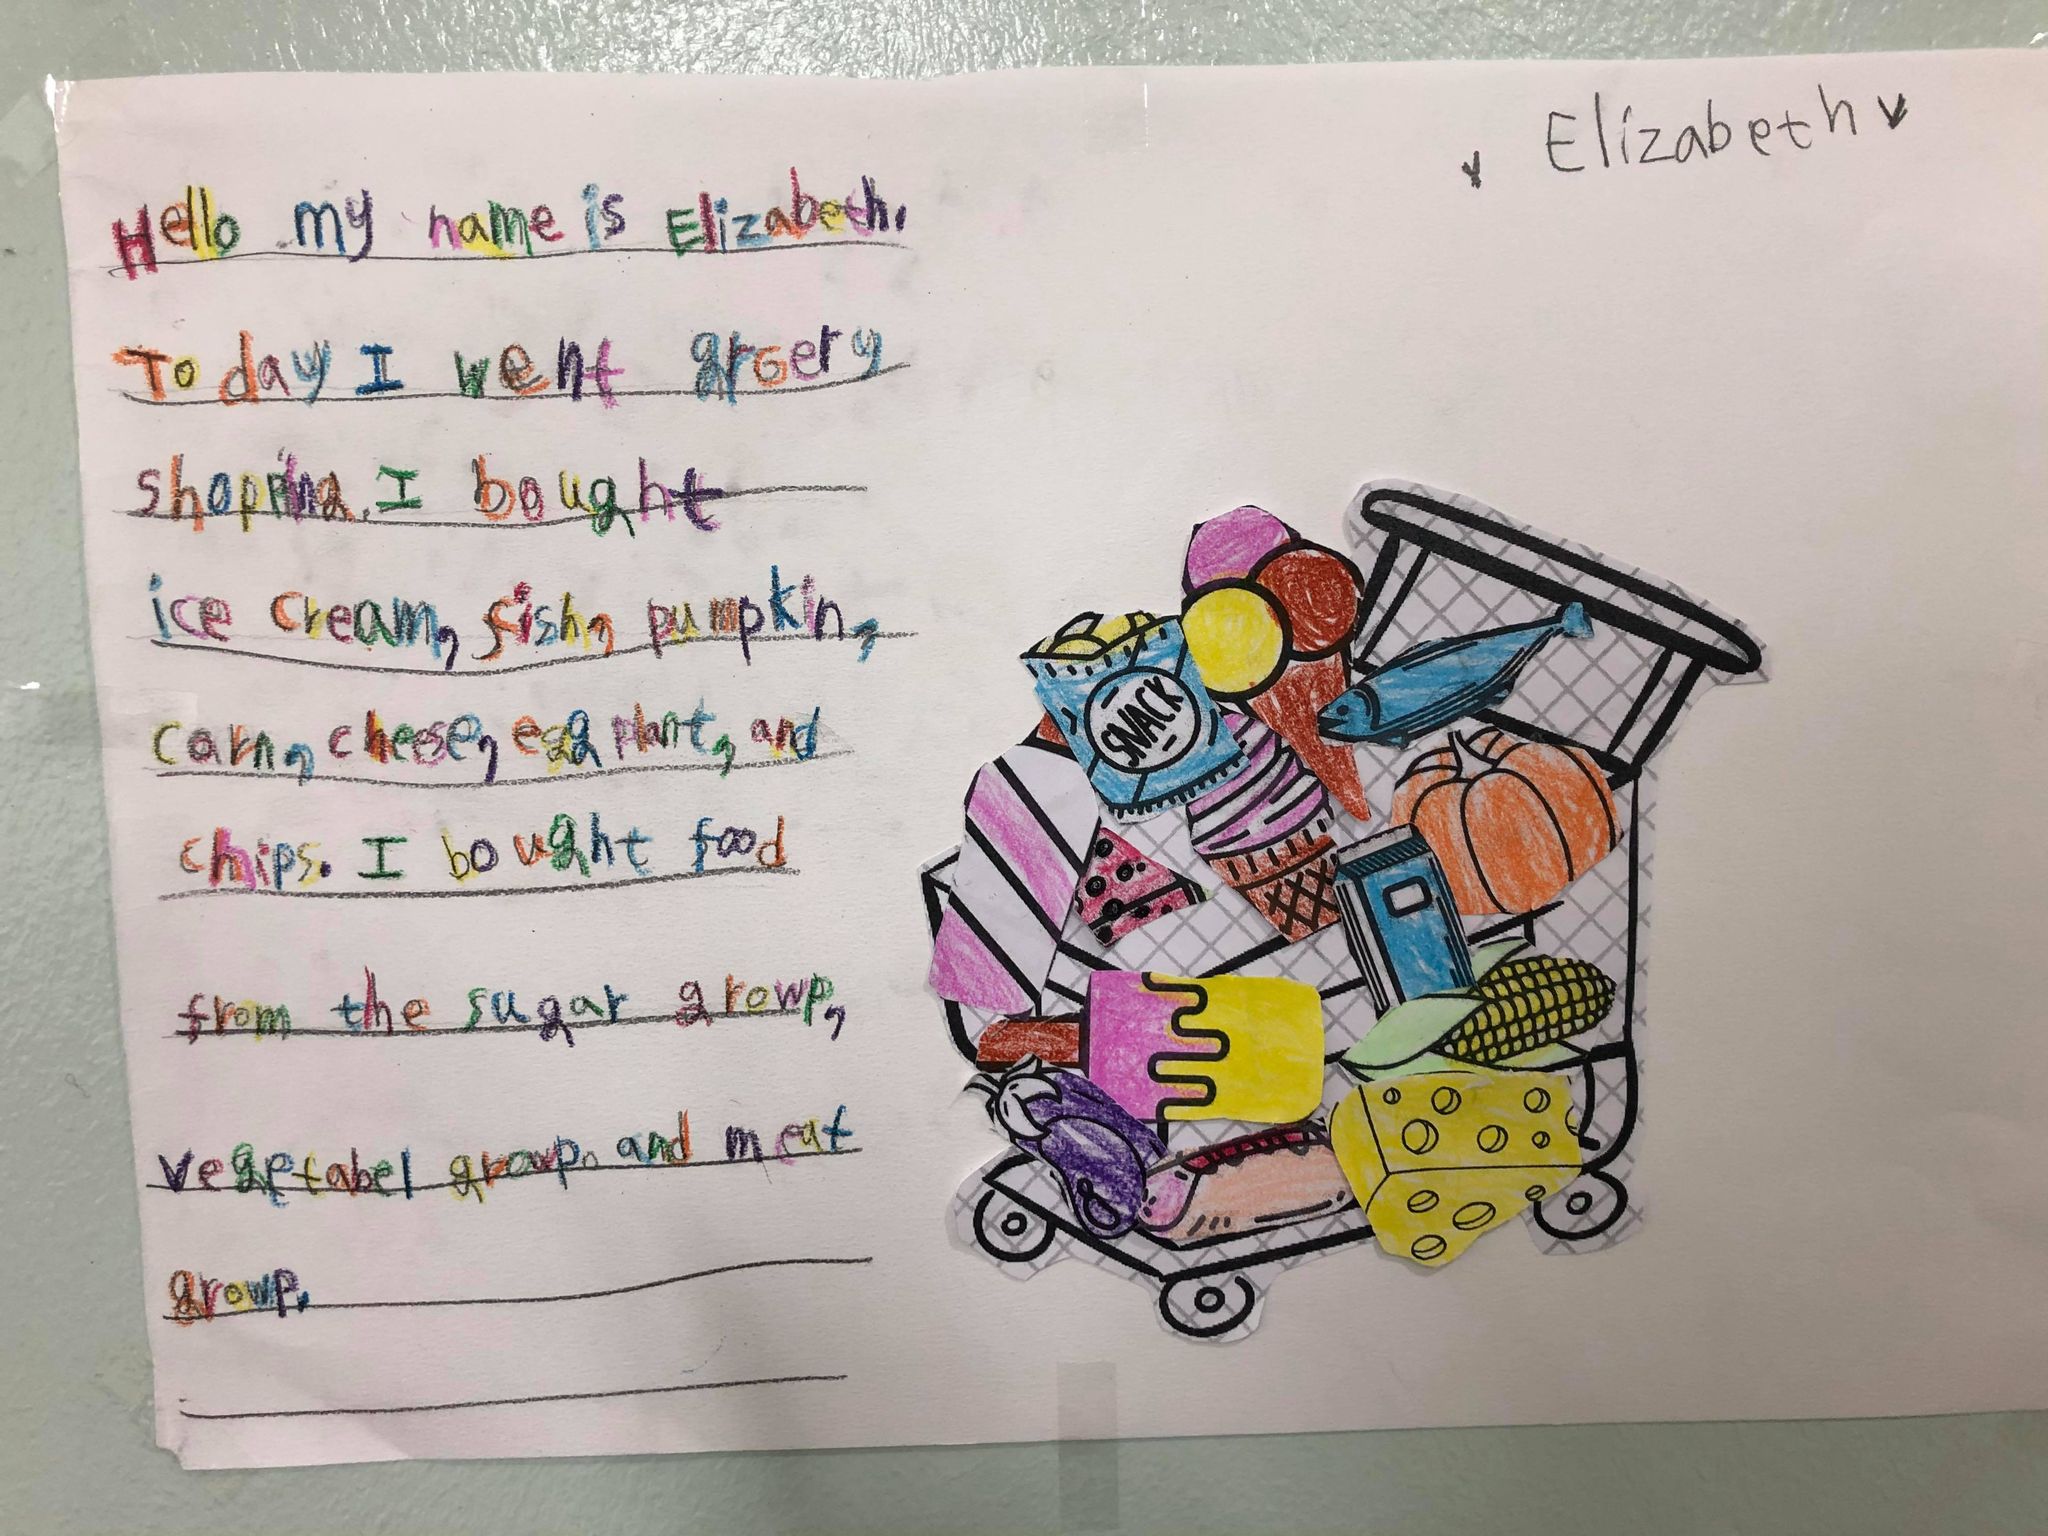 Elizabeth
Hello my name is Elizabeth.
Today I went grocery
shoping. I bought
ice cream, fish, pumpkin,
carn, cheese, egg plant, and
chips. I bought food
from the sugar growp,
vegetabel growp. and meat
growp.
SNACK